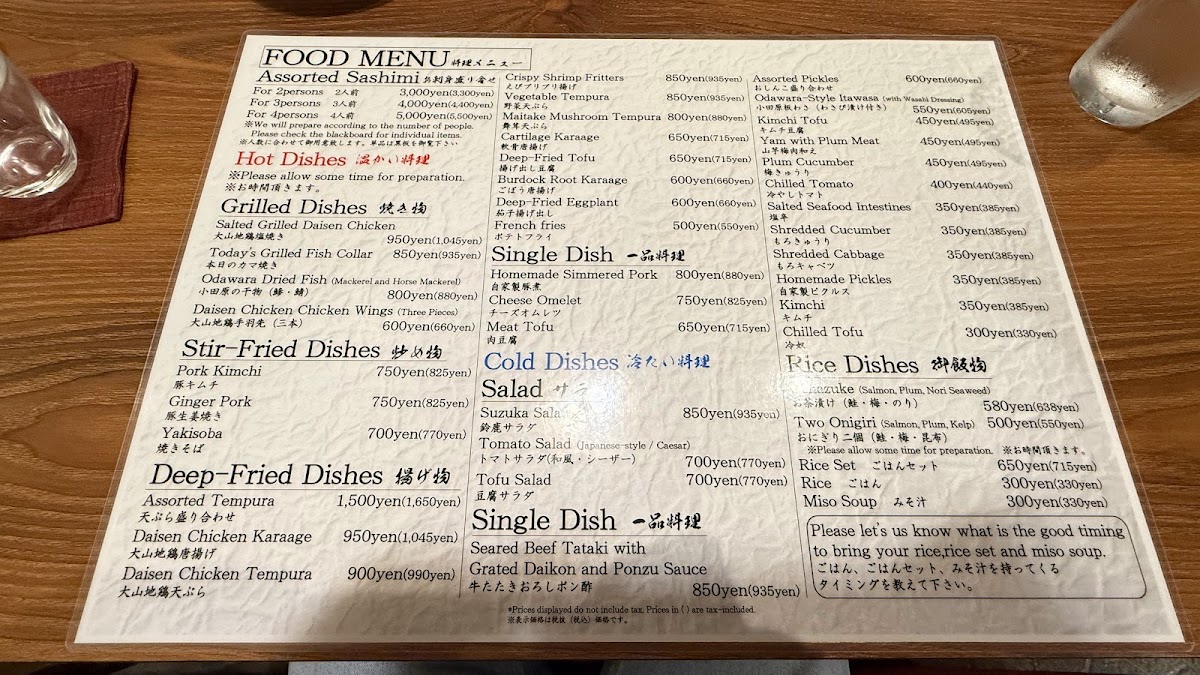 FOOD MENU 料理メニュー
Assorted Sashimi お刺身盛り合せ
For 2persons 2人前 3,000yen(3,300yen)
For 3persons 3人前 4,000yen(4,400yen)
For 4persons 4人前 5,000yen(5,500yen)
※We will prepare according to the number of people.
Please check the blackboard for individual items.
※人数に合わせて御用意致します。単品は黒板を御覧下さい
Hot Dishes 温かい料理
※Please allow some time for preparation.
※お時間頂きます。
Grilled Dishes 焼き物
Salted Grilled Daisen Chicken
大山地鶏塩焼き 950yen(1,045yen)
Today's Grilled Fish Collar 850yen(935yen)
本日のカマ焼き
Odawara Dried Fish (Mackerel and Horse Mackerel)
小田原の干物（鯵・鯖） 800yen(880yen)
Daisen Chicken Chicken Wings (Three Pieces)
大山地鶏手羽先（三本） 600yen(660yen)
Stir-Fried Dishes 炒め物
Pork Kimchi 750yen(825yen)
豚キムチ
Ginger Pork 750yen(825yen)
豚生姜焼き
Yakisoba 700yen(770yen)
焼きそば
Deep-Fried Dishes 揚げ物
Assorted Tempura 1,500yen(1,650yen)
天ぷら盛り合わせ
Daisen Chicken Karaage 950yen(1,045yen)
大山地鶏唐揚げ
Daisen Chicken Tempura 900yen(990yen)
大山地鶏天ぷら
Crispy Shrimp Fritters 850yen(935yen)
えびプリプリ揚げ
Vegetable Tempura 850yen(935yen)
野菜天ぷら
Maitake Mushroom Tempura 800yen(880yen)
舞茸天ぷら
Cartilage Karaage 650yen(715yen)
軟骨唐揚げ
Deep-Fried Tofu 650yen(715yen)
揚げ出し豆腐
Burdock Root Karaage 600yen(660yen)
ごぼう唐揚げ
Deep-Fried Eggplant 600yen(660yen)
茄子揚げ出し
French fries 500yen(550yen)
ポテトフライ
Single Dish 一品料理
Homemade Simmered Pork 800yen(880yen)
自家製豚煮
Cheese Omelet 750yen(825yen)
チーズオムレツ
Meat Tofu 650yen(715yen)
肉豆腐
Cold Dishes 冷たい料理
Salad サラ
Suzuka Sala 850yen(935yen)
鈴鹿サラダ
Tomato Salad (Japanese-style / Caesar)
トマトサラダ(和風・シーザー) 700yen(770yen)
Tofu Salad 700yen(770yen)
豆腐サラダ
Single Dish 一品料理
Seared Beef Tataki with
Grated Daikon and Ponzu Sauce
牛たたきおろしポン酢 850yen(935yen)
Assorted Pickles 600yen(660yen)
おしんこ盛り合わせ
Odawara-Style Itawasa (with Wasabi Dressing)
小田原板わさ（わさび漬け付き） 550yen(605yen)
Kimchi Tofu 450yen(495yen)
キムチ豆腐
Yam with Plum Meat 450yen(495yen)
山芋梅肉和え
Plum Cucumber 450yen(495yen)
梅きゅうり
Chilled Tomato 400yen(440yen)
冷やしトマト
Salted Seafood Intestines 350yen(385yen)
塩辛
Shredded Cucumber 350yen(385yen)
もろきゅうり
Shredded Cabbage 350yen(385yen)
もろキャベツ
Homemade Pickles 350yen(385yen)
自家製ピクルス
Kimchi 350yen(385yen)
キムチ
Chilled Tofu 300yen(330yen)
冷奴
Rice Dishes 御飯物
hazuke (Salmon, Plum, Nori Seaweed)
お茶漬け（鮭・梅・のり） 580yen(638yen)
Two Onigiri (Salmon, Plum, Kelp) 500yen(550yen)
おにぎり二個（鮭・梅・昆布）
※Please allow some time for preparation. ※お時間頂きます。
Rice Set ごはんセット 650yen(715yen)
Rice ごはん 300yen(330yen)
Miso Soup みそ汁 300yen(330yen)
Please let's us know what is the good timing
to bring your rice,rice set and miso soup.
ごはん、ごはんセット、みそ汁を持ってくる
タイミングを教えて下さい。
*Prices displayed do not include tax. Prices in ( ) are tax-included.
※表示価格は税抜（税込）価格です。